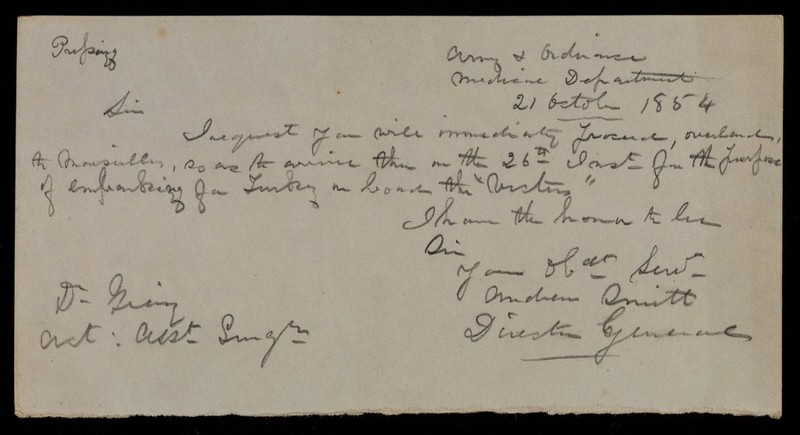 Pressing
Army & Ordnance
Medical Department
21 October 1854
Sir
I request you will immediately proceed, overland,
to Marseilles, so as to arrive there on the 26th Inst. for the purpose
of embarking for Turkey on board the "Vectis"
I have the honor to be
Sir
Your Obdt Servt
Andrew Smith
Director General
Dr
Act: Asst. Surgn